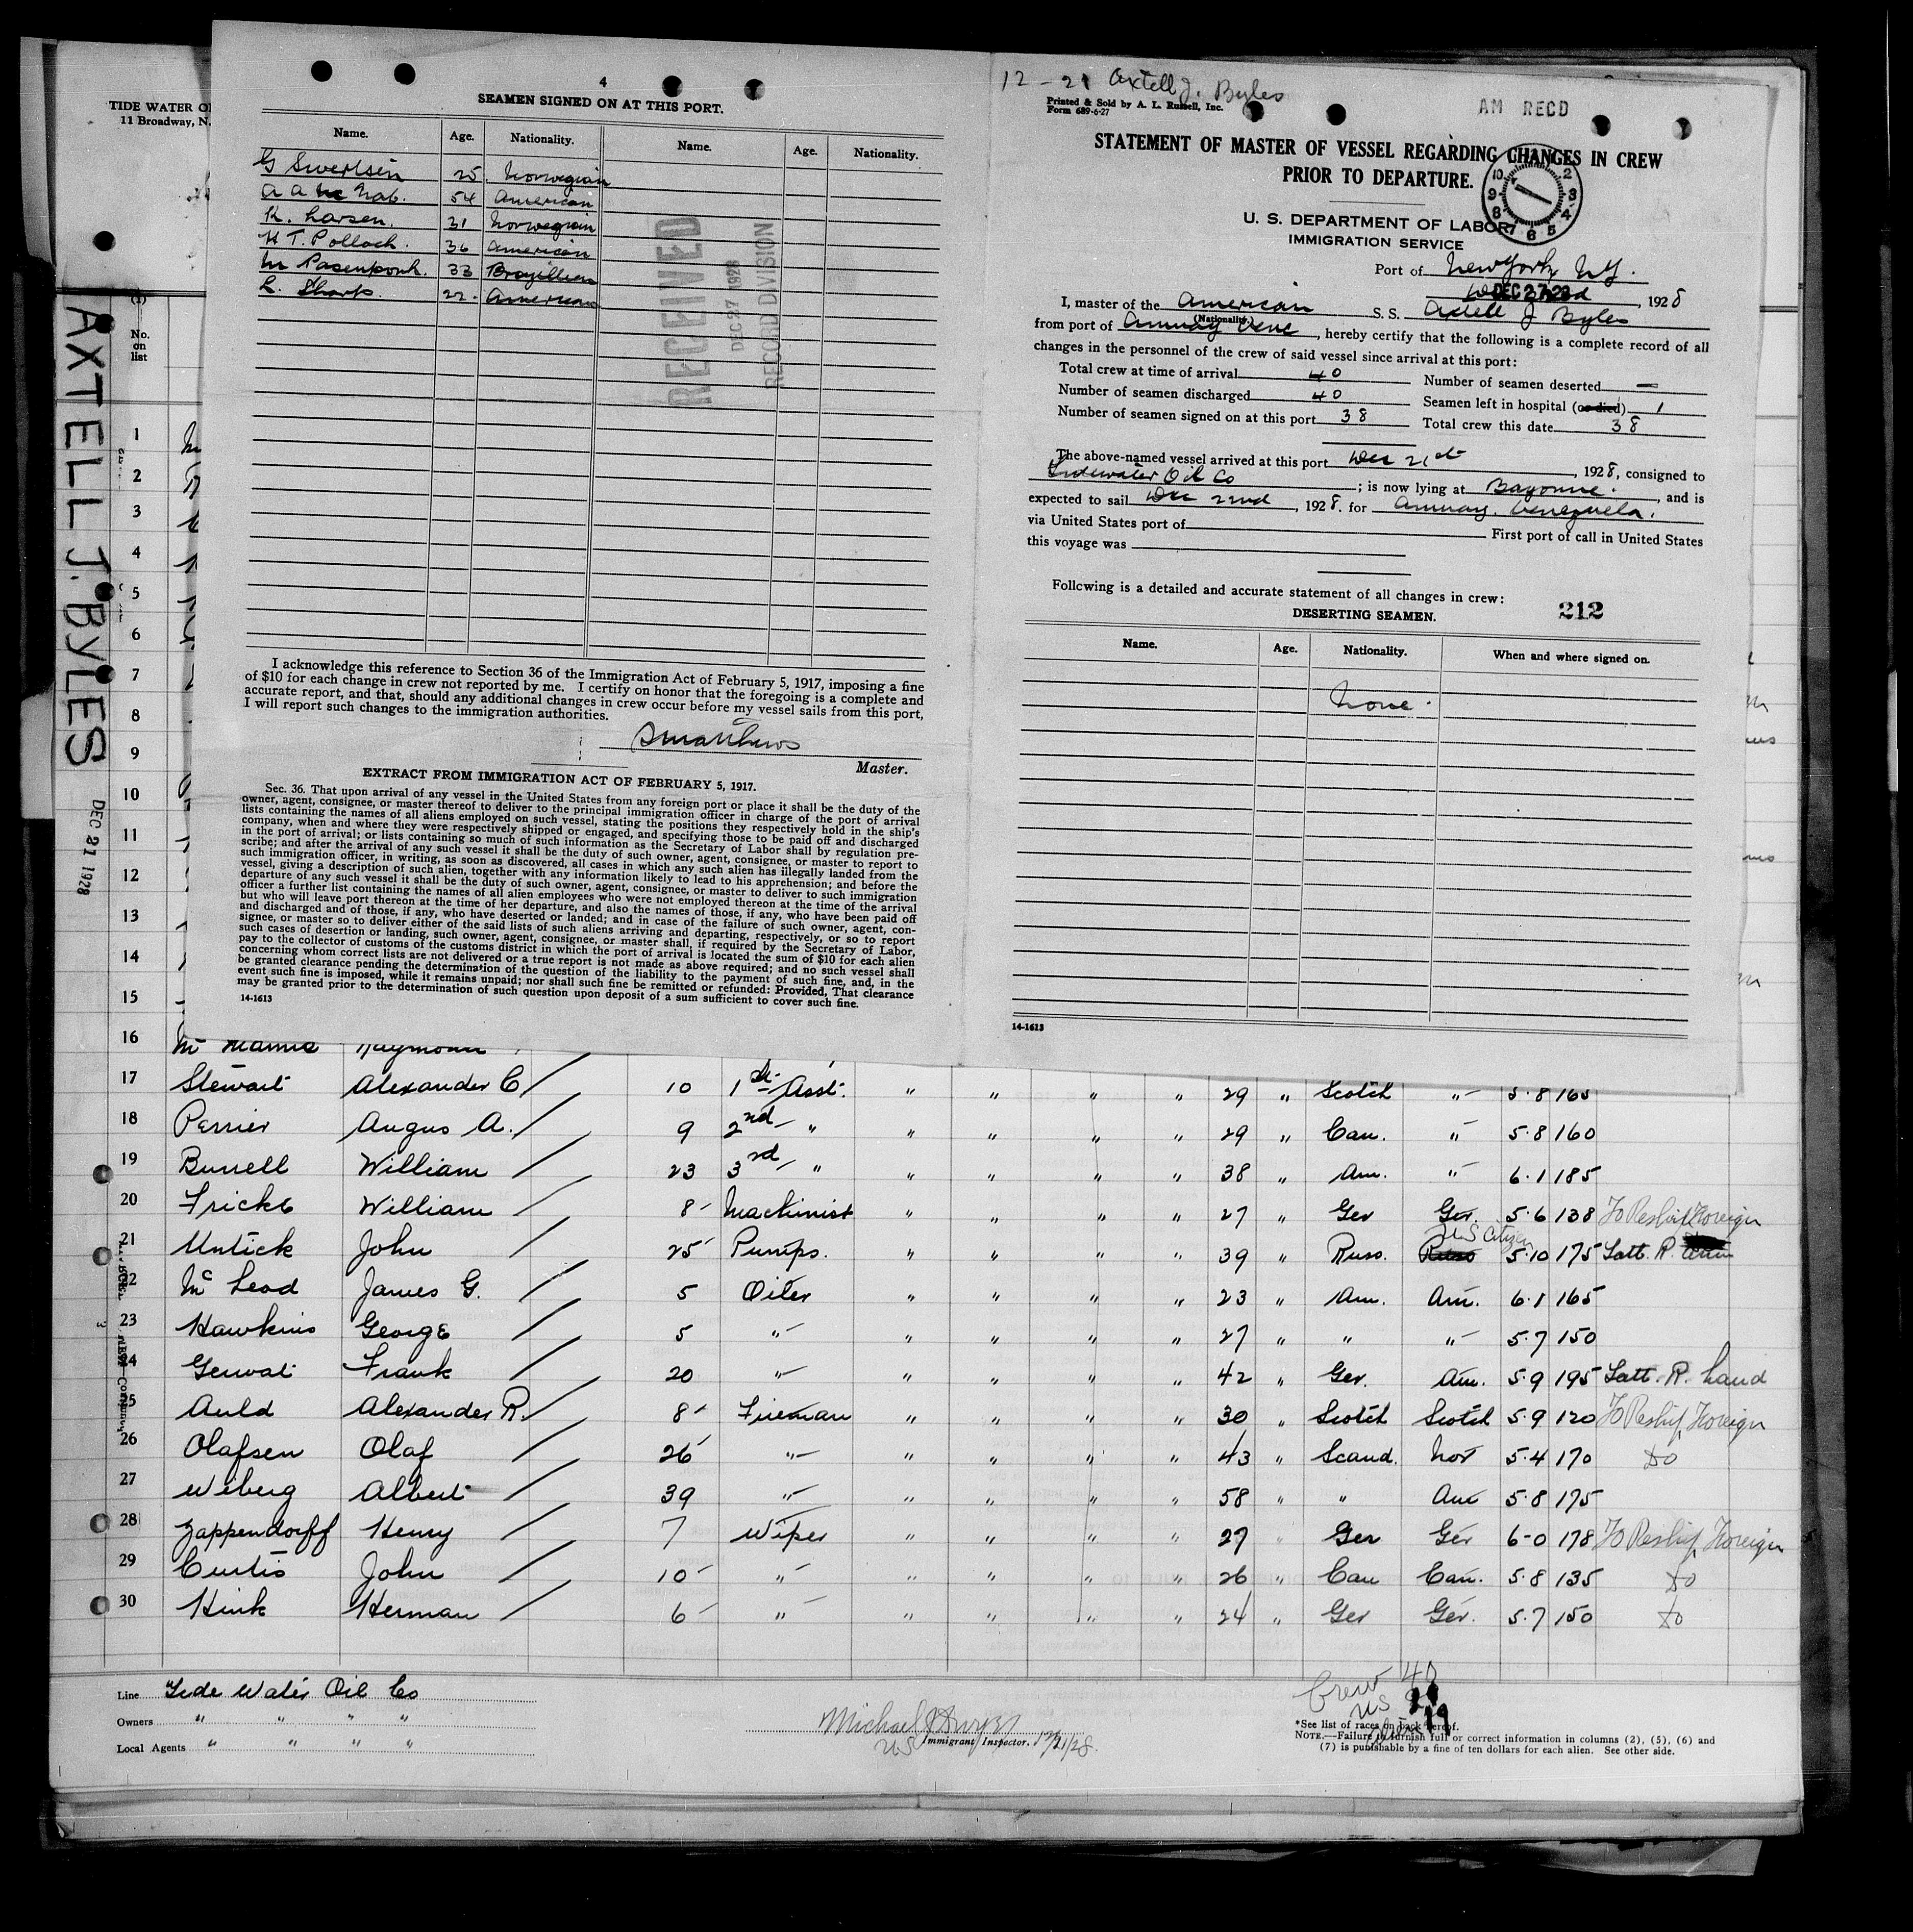 TIDE WATER O
11 Broadway, N.
AXTELL J. BYLES
DEC 21 1928
(1)
No.
on
list
4
SEAMEN SIGNED ON AT THIS PORT.
Name. Age. Nationality. Name. Age. Nationality.
G Sivertsen 25. Norwegian
A A Mc Nab. 54 American
K. Larsen. 31 Norwegian
H T. Pollock. 36 American
M 33 Brazillian
L. Sharp. 22. American
RECEIVED
DEC 27 1928
RECORD DIVISION
I acknowledge this reference to Section 36 of the Immigration Act of February 5, 1917, imposing a fine
of $10 for each change in crew not reported by me. I certify on honor that the foregoing is a complete and
accurate report, and that, should any additional changes in crew occur before my vessel sails from this port,
I will report such changes to the immigration authorities.
Master.
EXTRACT FROM IMMIGRATION ACT OF FEBRUARY 5, 1917.
Sec. 36. That upon arrival of any vessel in the United States from any foreign port or place it shall be the duty of the
owner, agent, consignee, or master thereof to deliver to the principal immigration officer in charge of the port of arrival
lists containing the names of all aliens employed on such vessel, stating the positions they respectively hold in the ship's
company, when and where they were respectively shipped or engaged, and specifying those to be paid off and discharged
in the port of arrival; or lists containing so much of such information as the Secretary of Labor shall by regulation pre-
scribe; and after the arrival of any such vessel it shall be the duty of such owner, agent, consignee, or master to report to
such immigration officer, in writing, as soon as discovered, all cases in which any such alien has illegally landed from the
vessel, giving a description of such alien, together with any information likely to lead to his apprehension; and before the
departure of any such vessel it shall be the duty of such owner, agent, consignee, or master to deliver to such immigration
officer a further list containing the names of all alien employees who were not employed thereon at the time of the arrival
but who will leave port thereon at the time of her departure, and also the names of those, if any, who have been paid off
and discharged and of those, if any, who have deserted or landed; and in case of the failure of such owner, agent, con-
signee, or master so to deliver either of the said lists of such aliens arriving and departing, respectively, or so to report
such cases of desertion or landing, such owner, agent, consignee, or master shall, if required by the Secretary of Labor,
pay to the collector of customs of the customs district in which the port of arrival is located the sum of $10 for each alien
concerning whom correct lists are not delivered or a true report is not made as above required; and no such vessel shall
be granted clearance pending the determination of the question of the liability to the payment of such fine, and, in the
event such fine is imposed, while it remains unpaid; nor shall such fine be remitted or refunded: Provided, That clearance
may be granted prior to the determination of such question upon deposit of a sum sufficient to cover such fine.
14-1613
12-21 Axtell J. Byles
Printed & Sold by A. L. Russell, Inc.
Form 689-6-27
AM RECD
STATEMENT OF MASTER OF VESSEL REGARDING CHANGES IN CREW
PRIOR TO DEPARTURE.
U. S. DEPARTMENT OF LABOR
IMMIGRATION SERVICE
Port of New York NY.
DEC 27 28, 1928
I, master of the American S. S. Axtell J Byles
(Nationality.)
from port of Amuay Vene, hereby certify that the following is a complete record of all
changes in the personnel of the crew of said vessel since arrival at this port:
Total crew at time of arrival 40 Number of seamen deserted —
Number of seamen discharged 40 Seamen left in hospital (or died) 1
Number of seamen signed on at this port 38 Total crew this date 38
The above-named vessel arrived at this port Dec 21st, 1928, consigned to
Tidewater Oil Co; is now lying at Bayonne., and is
expected to sail Dec 22nd, 1928. for Amuay, Venezuela.
via United States port of First port of call in United States
this voyage was
Following is a detailed and accurate statement of all changes in crew:
DESERTING SEAMEN. 212
Name. Age. Nationality. When and where signed on.
None.
14-1613
1
2
3
4
5
6
7
8
9
10
11
12
13
14
15
16 Raymond
17 Stewart Alexander C / 10 1st Asst. " " " " 29 " Scotch " 5.8 165
18 Perrier Angus A. / 9 2nd " " " " " 29 " Can. " 5.8 160
19 Burrell William / 23 3rd " " " " " 38 " Am. " 6.1 185
20 Fricke William / 8 Machinist " " " " 27 " Ger Ger. 5.6 138 To Reship Foreign
21 Untick John / 25 Pumps. " " " " 39 " Russ. Russ U.S Citizen 5.10 175 Satt. R.
22 Mc Leod James G. / 5 Oiler " " " " 23 " Am. Am. 6.1 165
23 Hawkins George / 5 " " " " " 27 " " " 5.7 150
24 Gerwat Frank / 20 " " " " " 42 " Ger. Am. 5.9 195 Satt. R. Land
25 Auld Alexander R. / 8 Fireman " " " " 30 " Scotch Scotch 5.9 120 To Reship Foreign
26 Olafsen Olaf / 26 " " " " " 43 " Scand. Nor 5.4 170 Do
27 Wiberg Albert / 39 " " " " " 58 " " Am 5.8 175
28 Zappendorff Henry / 7 Wiper " " " " 27 " Ger Ger 6-0 178 To Reship Foreign
29 Curtis John / 10 " " " " " 26 " Can Can. 5.8 135 Do
30 Hink Herman / 6 " " " " " 24 " Ger Ger. 5.7 150 Do
Line Tide Water Oil Co
Owners " " " "
Local Agents " " " "
Michael
US Immigrant Inspector. 12/21/28.
Crew 40
US 21
19
*See list of races on back hereof.
NOTE.—Failure to furnish full or correct information in columns (2), (5), (6) and
(7) is punishable by a fine of ten dollars for each alien. See other side.